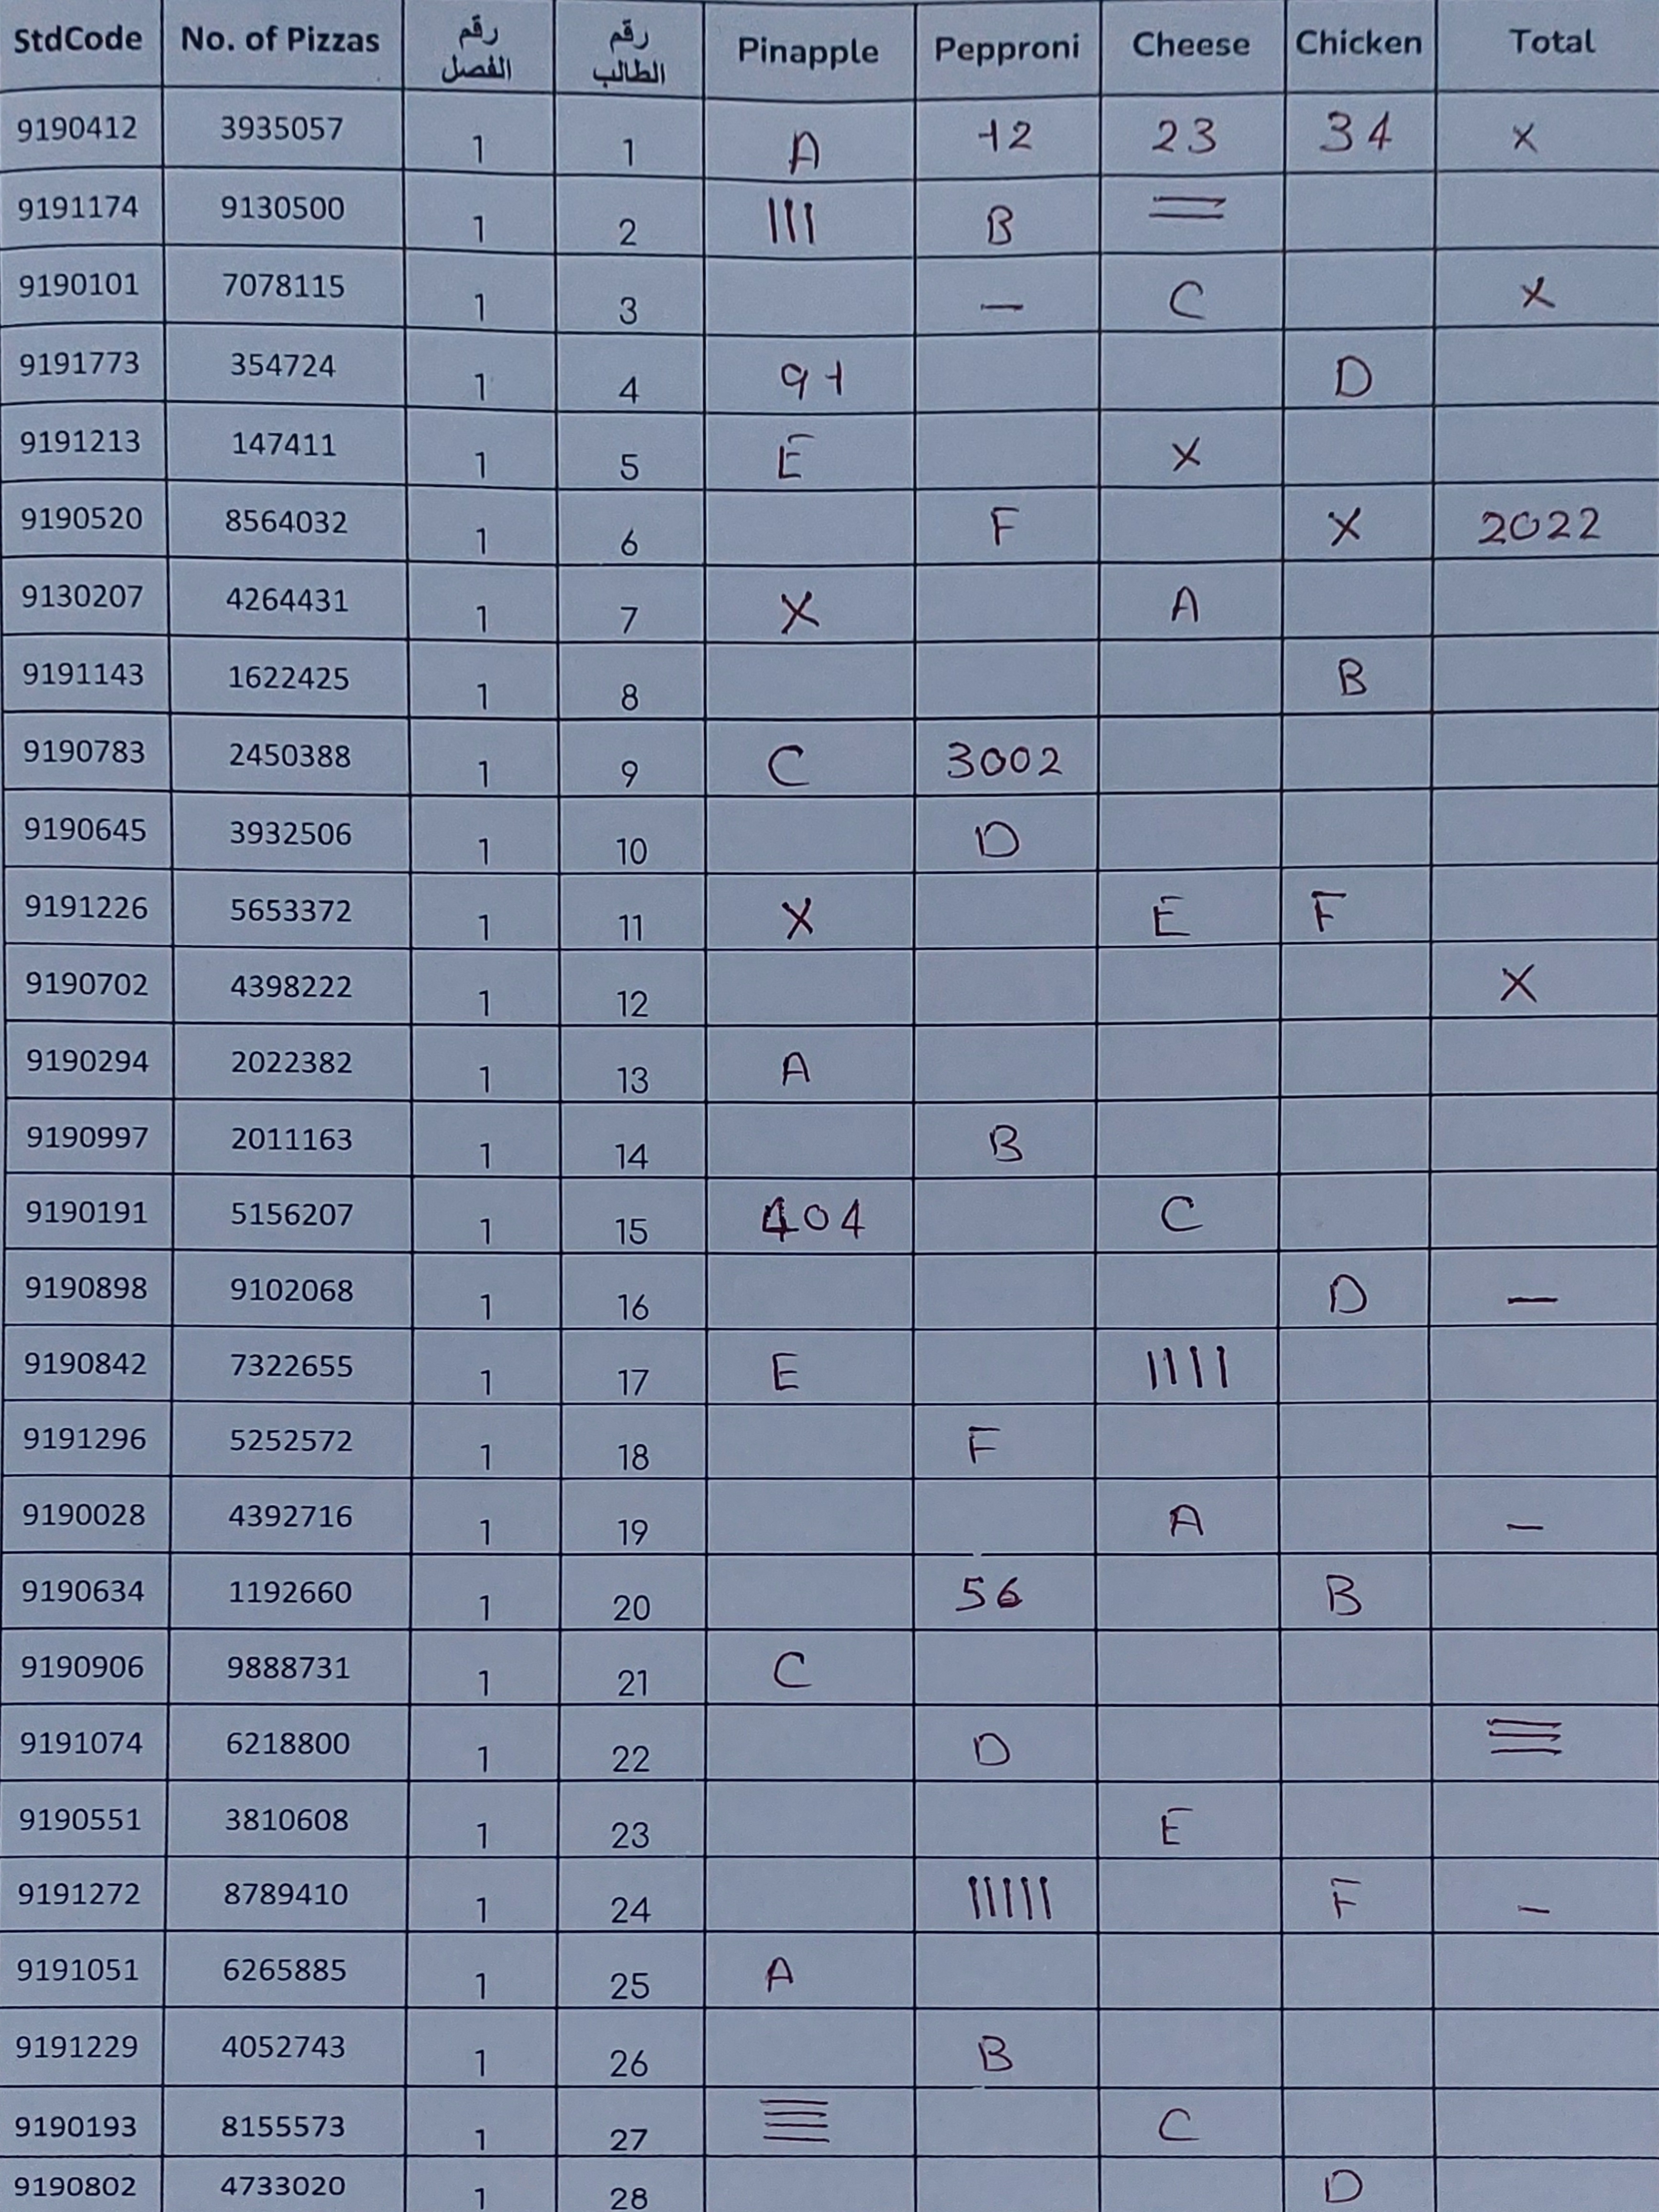 StdCode No. of Pizzas رقم الفصل رقم الطالب Pinapple Pepproni Cheese Chicken Total
9190412 3935057 1 1 A 12 23 34 X
9191174 9130500 1 2 ||| B =
9190101 7078115 1 3 — C X
9191773 354724 1 4 91 D
9191213 147411 1 5 E X
9190520 8564032 1 6 F X 2022
9130207 4264431 1 7 X A
9191143 1622425 1 8 B
9190783 2450388 1 9 C 3002
9190645 3932506 1 10 D
9191226 5653372 1 11 X E F
9190702 4398222 1 12 X
9190294 2022382 1 13 A
9190997 2011163 1 14 B
9190191 5156207 1 15 404 C
9190898 9102068 1 16 D —
9190842 7322655 1 17 E ||||
9191296 5252572 1 18 F
9190028 4392716 1 19 A —
9190634 1192660 1 20 56 B
9190906 9888731 1 21 C
9191074 6218800 1 22 D ≡
9190551 3810608 1 23 E
9191272 8789410 1 24 ||||| F —
9191051 6265885 1 25 A
9191229 4052743 1 26 B
9190193 8155573 1 27 ≣ C
9190802 4733020 1 28 D